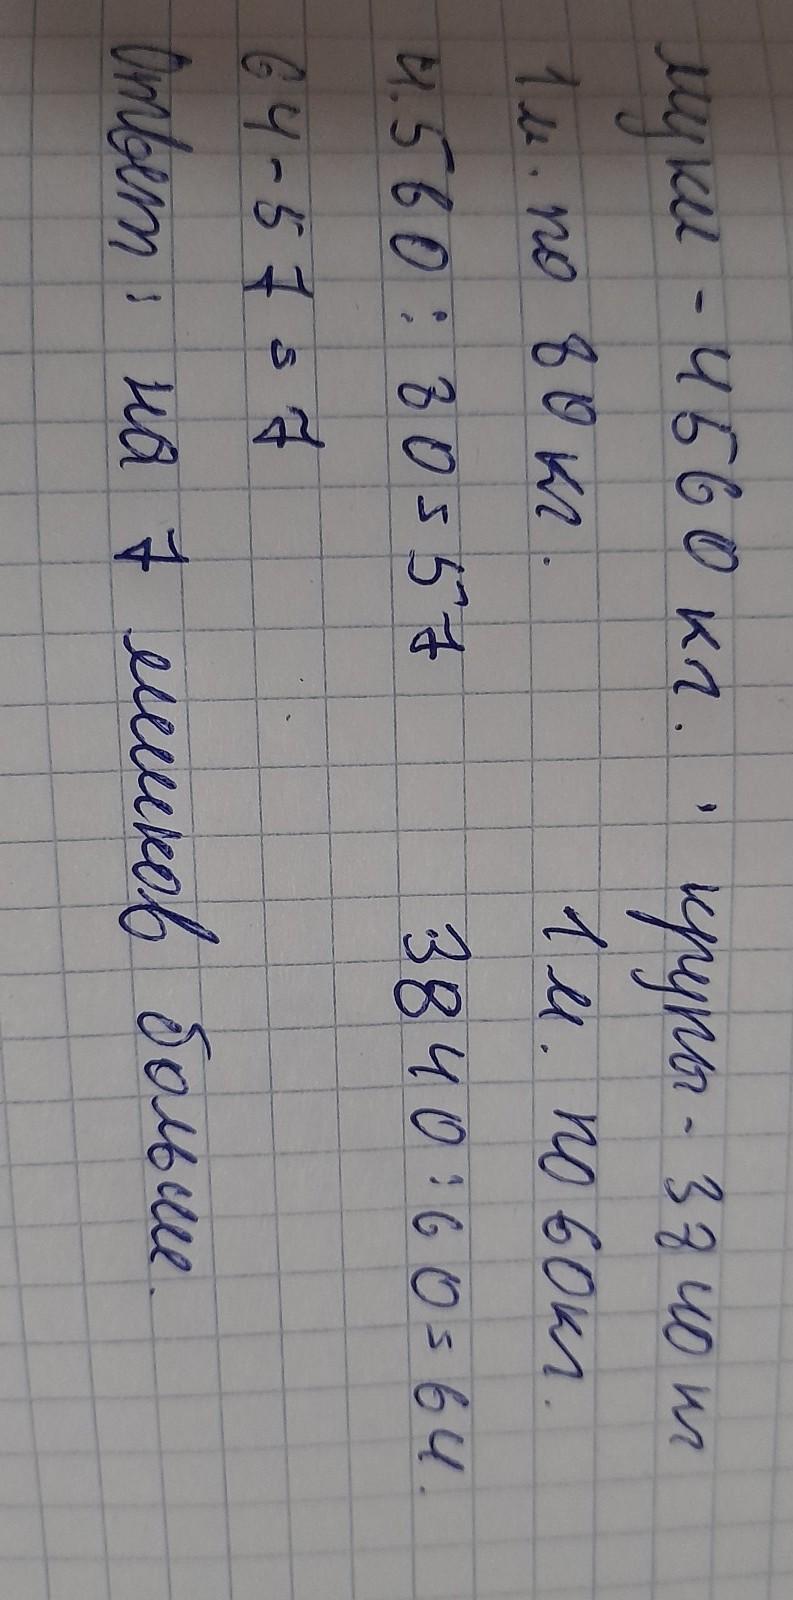 муки - 4560 кг. ; крупы - 3840 кг
1 м. по 80 кг. 1 м. по 60 кг.
4560 : 80 = 57 3840 : 60 = 64.
64 - 57 = 7
Ответ: на 7 мешков больше.